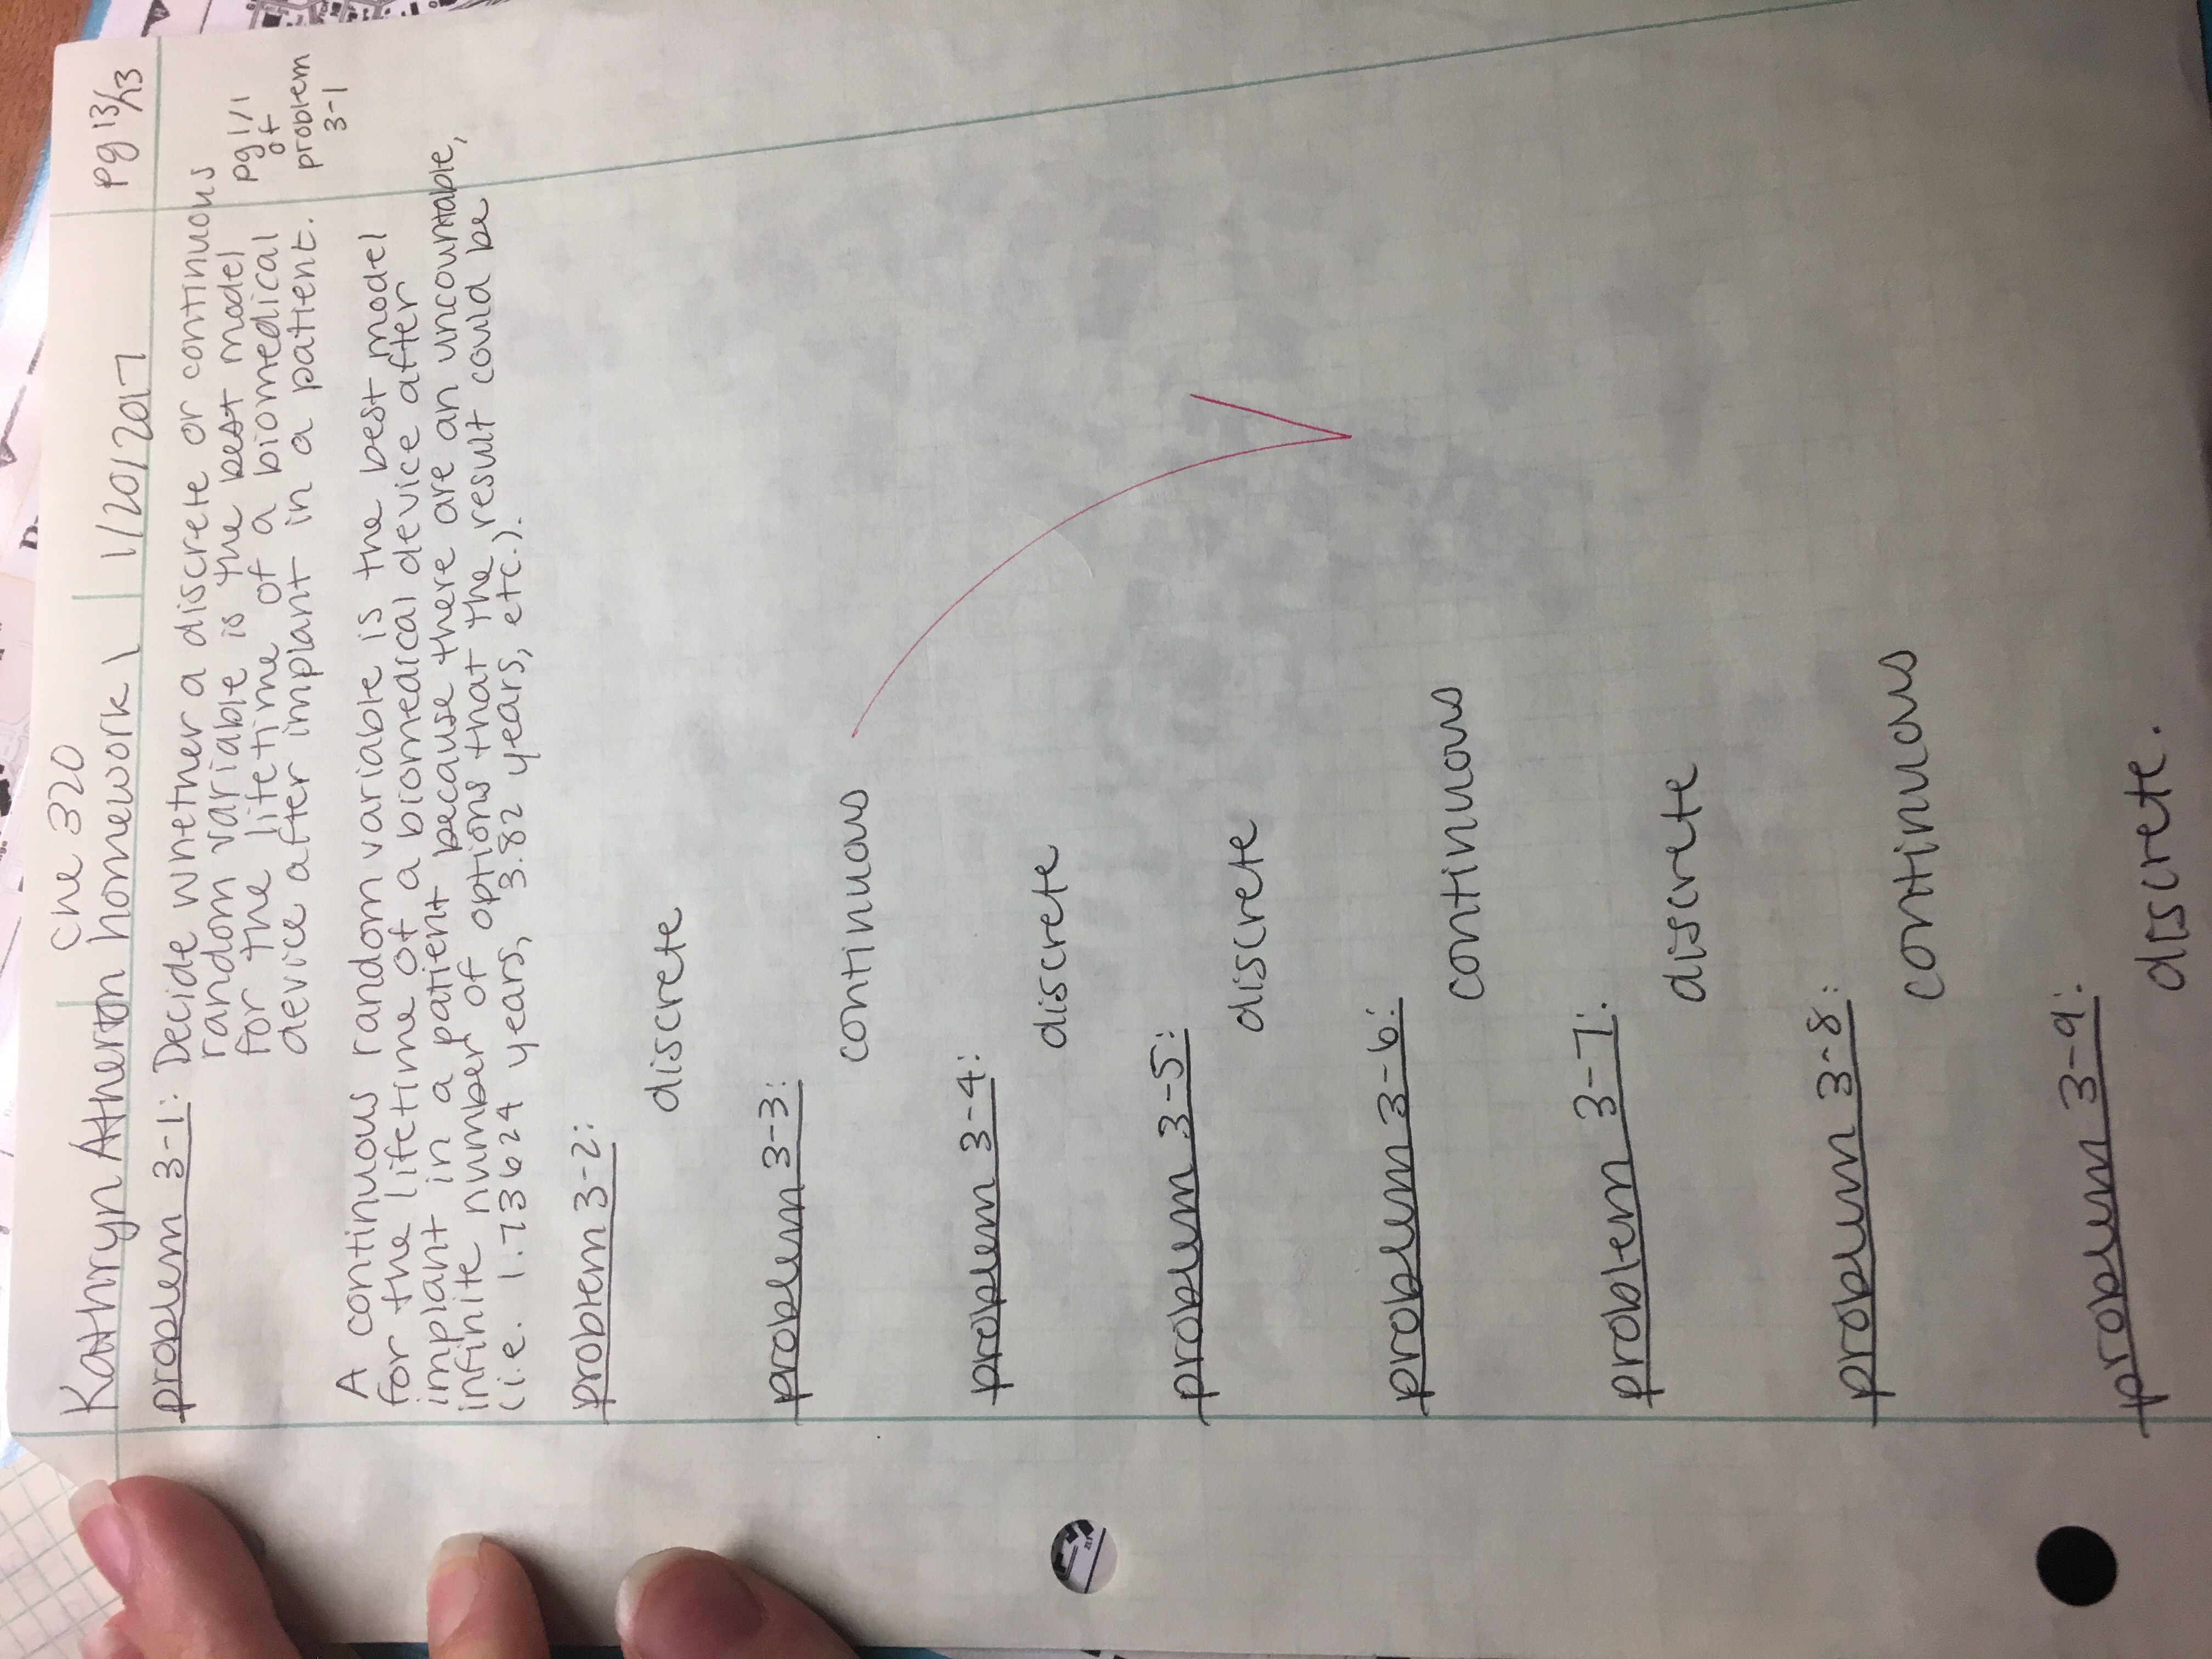 che 320
Kathryn Atherton homework 1 1/20/2017 pg 13/13
problem 3-1: Decide whether a discrete or continuous
random variable is the best model
for the lifetime of a biomedical
device after implant in a patient.
pg 1/1
of
problem
3-1
A continuous random variable is the best model
for the lifetime of a biomedical device after
implant in a patient because there are an uncountable,
infinite number of options that the result could be
(i.e. 1.73624 years, 3.82 years, etc.).
problem 3-2:
discrete
problem 3-3:
continuous
problem 3-4:
discrete
problem 3-5:
discrete
problem 3-6:
continuous
problem 3-7:
discrete
problem 3-8:
continuous
problem 3-9:
discrete.